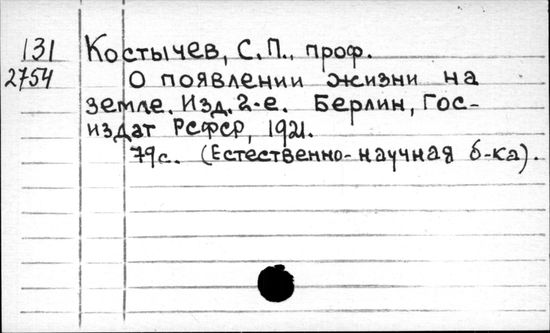 131
2754
Костычев, С.П., проф.
О появлении жизни на
земле. Изд. 2-е. Берлин, Гос-
издат РСФСР, 1921.
79с. (Естественно-научная б-ка).